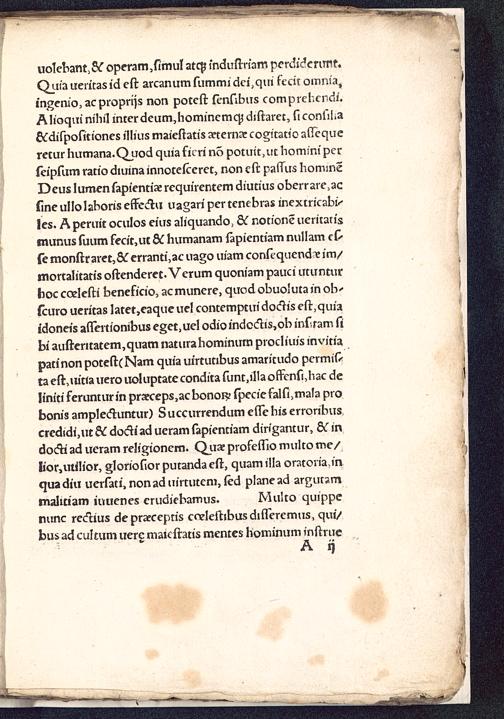 uolebant,& operam,simul atq; industriam perdiderunt.
Quia ueritas id est arcanum summi dei,qui fecit omnia,
ingenio, ac proprijs non potest sensibus comprehendi.
Alioqui nihil inter deum,hominemq; distaret, si consilia
&dispositiones illius maiestatis æternæ cogitatio asseque
retur humana.Quod quia fieri nõ potuit,ut homini per
seipsum ratio diuina innotesceret, non est passus hominẽ
Deus lumen sapientiæ requirentem diutius oberrare,ac
sine ullo laboris effectu uagari per tenebras inextricabi-
les. Aperuit oculos eius aliquando, & notionẽ ueritatis
munus suum fecit,ut & humanam sapientiam nullam es-
se monstraret,& erranti,ac uago uiam consequendæ im/
mortalitatis ostenderet.Verum quoniam pauci utuntur
hoc cœlesti beneficio, ac munere, quod obuoluta in ob-
scuro ueritas latet,eaque uel contemptui doctis est,quia
idoneis assertionibus eget,uel odio indoctis,ob insitam si
bi austeritatem, quam natura hominum procliuis in uitia
pati non potest(Nam quia uirtutibus amaritudo permis-
ta est,uitia uero uoluptate condita sunt,illa offensi,hac de
liniti feruntur in præceps,ac bonoꝝ specie falsi,mala pro
bonis amplectuntur) Succurrendum esse his erroribus
credidi,ut & docti ad ueram sapientiam dirigantur, & in
docti ad ueram religionem. Quæ professio multo me/
lior,utilior, gloriosior putanda est, quam illa oratoria,in
qua diu uersati, non ad uirtutem, sed plane ad argutam
malitiam iuuenes erudiebamus. Multo quippe
nunc rectius de præceptis cœlestibus disseremus, qui/
bus ad cultum uerę maiestatis mentes hominum instrue
A ij